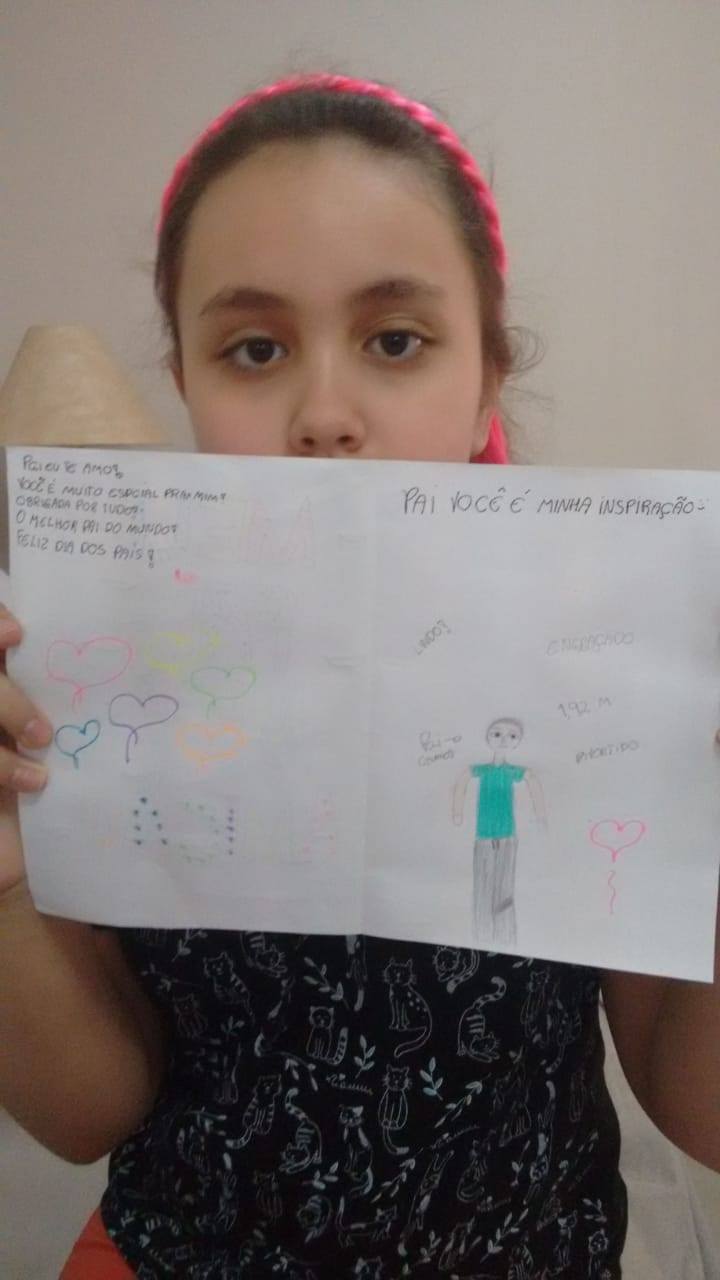 Pai eu te amo!
VOCÊ É MUITO ESPCIAL PRA MIM!
OBRIGADA POR TUDO!
O MELHOR PAI DO MUNDO!
FELIZ DIA DOS PAIS!
PAI VOCÊ É MINHA INSPIRAÇÃO
LINDO!
ENGRAÇADO
1,92 M
DIVERTIDO